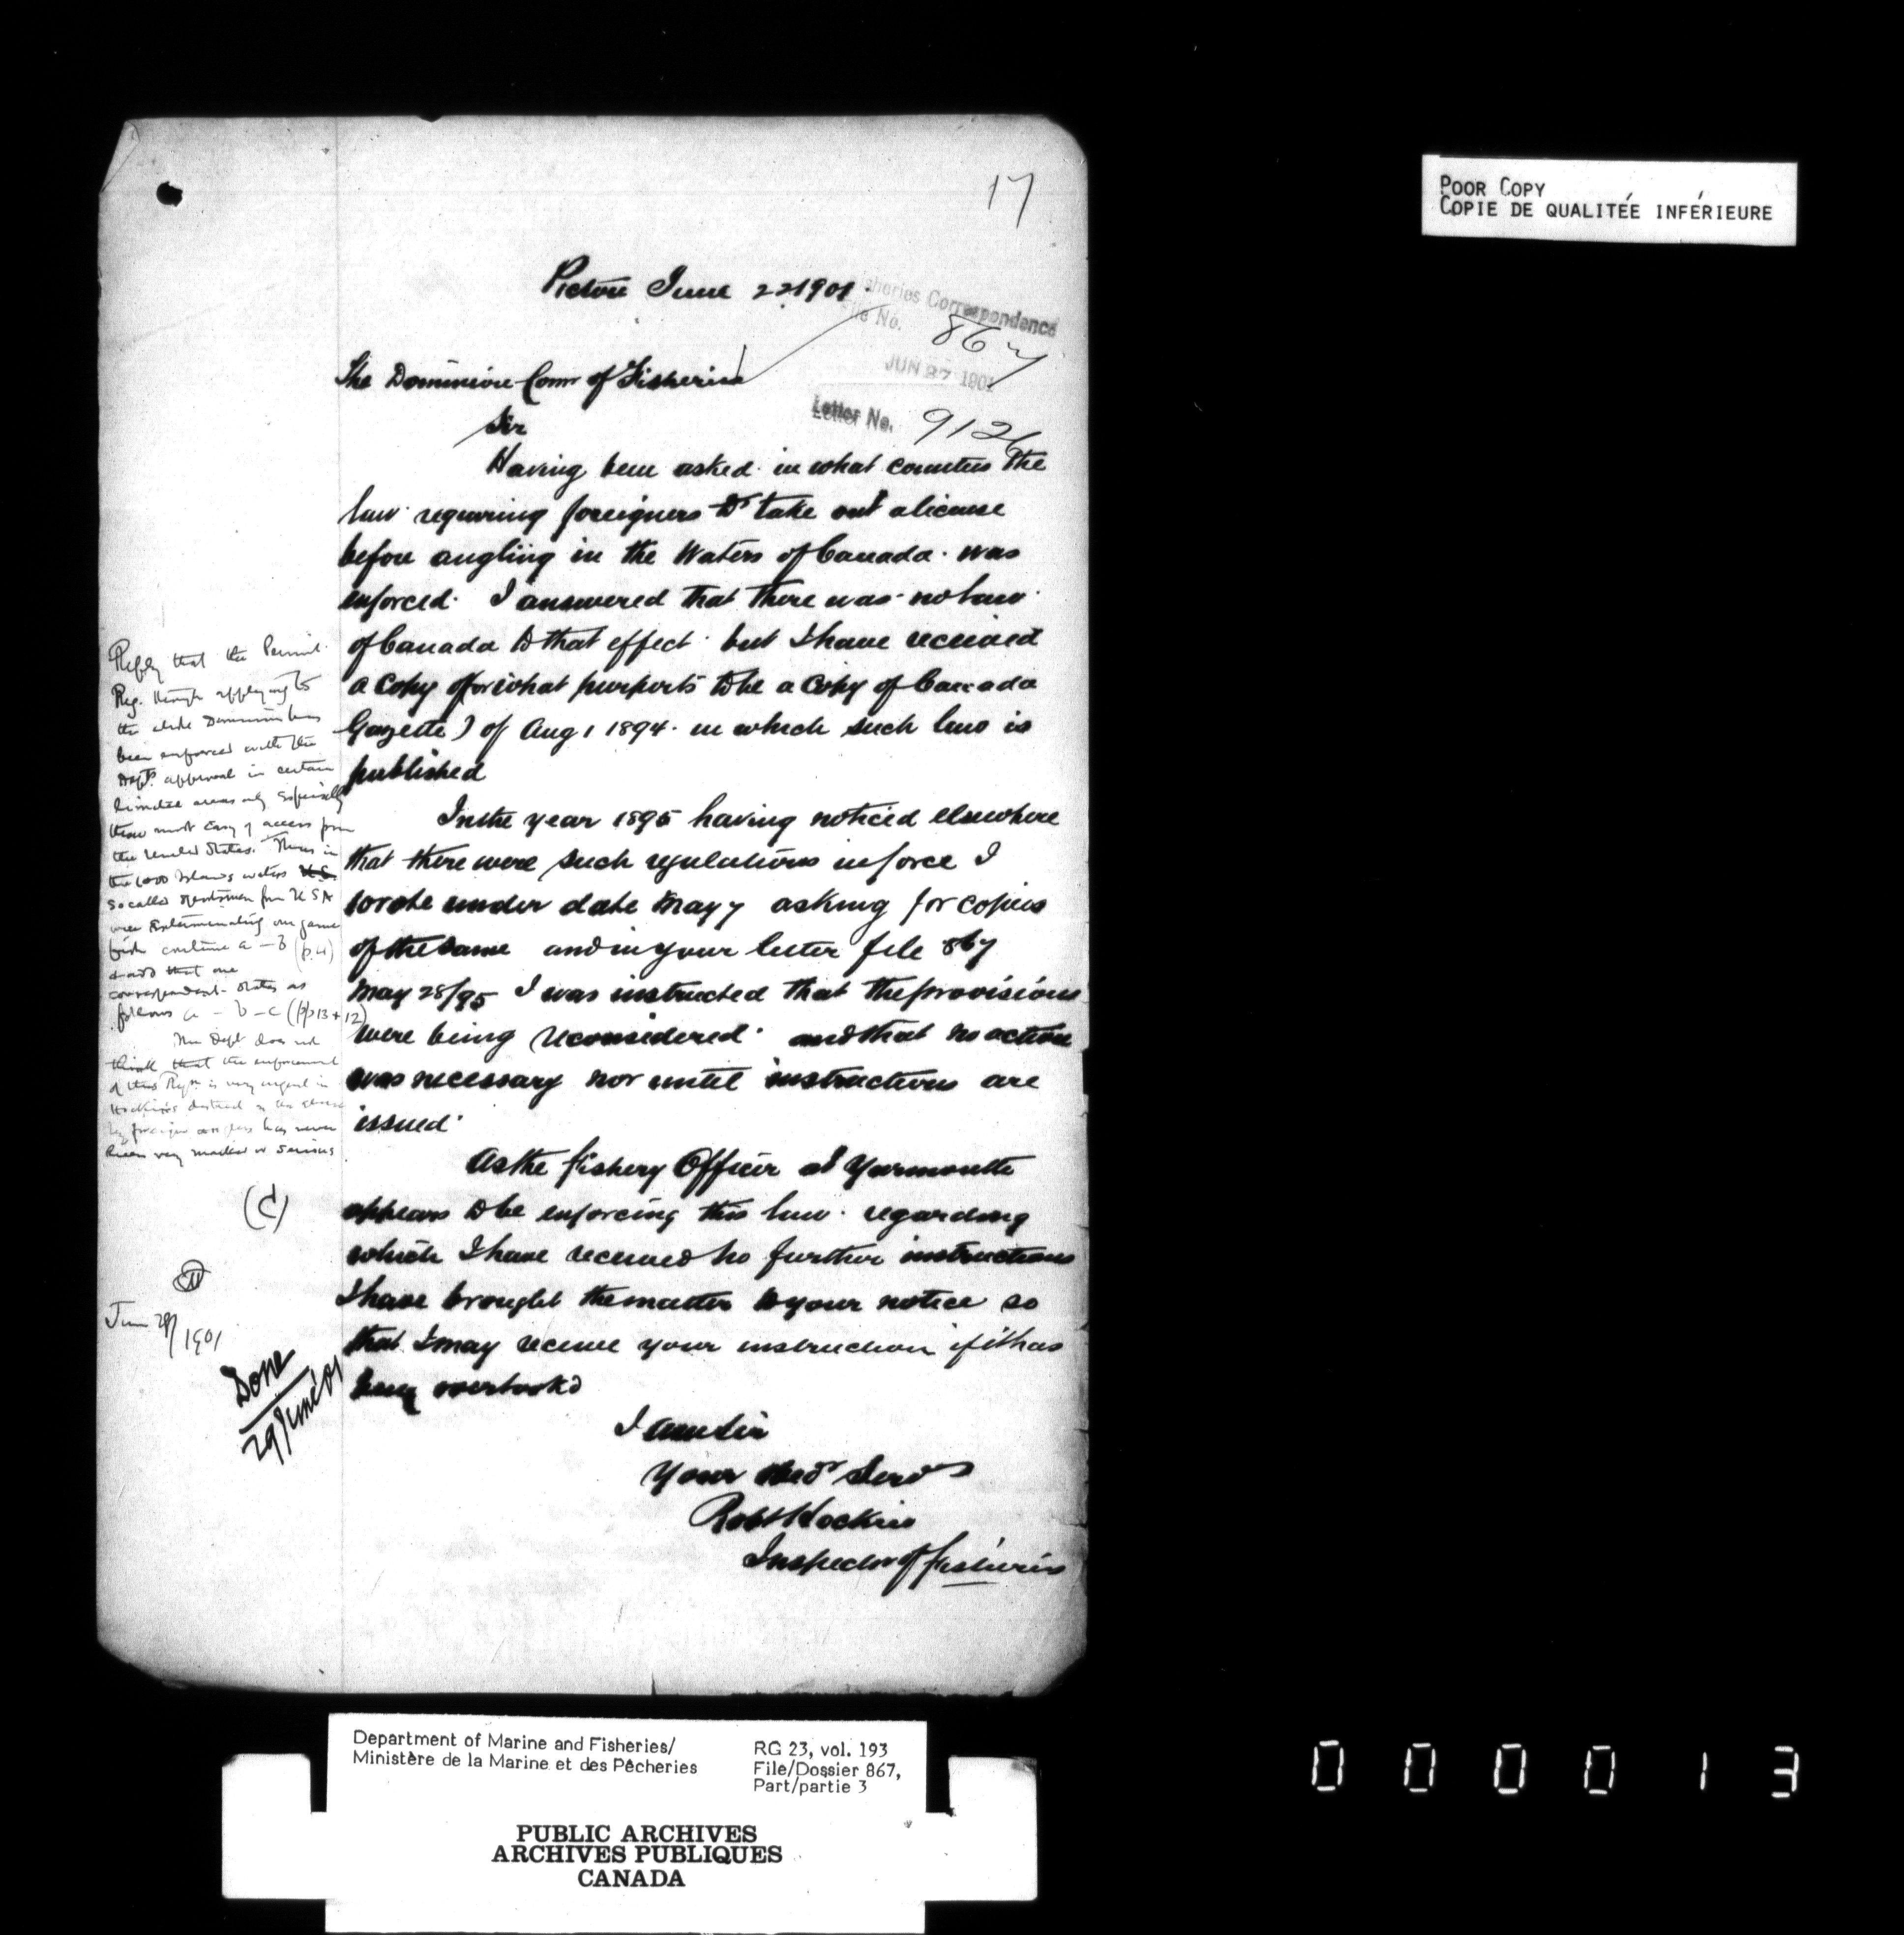 17
Pictou June 22 1901
Fisheries Correspondence
File No. 867
JUN 27 1901
Letter No. 9126
The Dominion Comr of Fisheries
Sir
Having been asked in what counties the
law requiring foreigners to take out a license
before angling in the Waters of Canada was
enforced. I answered that there was no law
of Canada to that effect but I have received
a Copy of (or what purports to be a Copy of Canada
Gazette) of Aug 1 1894. in which such law is
published
In the year 1895 having noticed elsewhere
that there were such regulations in force I
wrote under date May 7 asking for copies
of the same and in your letter file 867
May 28/95 I was instructed that the provisions
were being reconsidered and that no action
was necessary nor until instructions are
issued.
As the fishery Officer at Yarmouth
appears to be enforcing this law. regarding
which I have received no further instructions
I have brought the matter to your notice so
that I may receive your instruction if it has
been overlookd
I am Sir
Your Obedt Servt
Robt Hockin
Inspector of fisheries
Reply that the Permit
Reg. though applying to
the whole Dominion has
been enforced with the
Dept's approval in certain
limited areas only especially
those most easy of access from
the United States. Thus in
the 1000 Islands waters U.S.
so called sportsmen from USA
were exterminating our game
fish continue a - b (p.4)
& add that one
correspondent states as
follows a - b - c (pp 13 + 12)
The Dept does not
think that the enforcement
of this Regn is very urgent in
Hockin's district as the
by foreign anglers has never
been very marked or serious
(C)
June 29/1901
Done
29 June/01
POOR COPY
COPIE DE QUALITÉE INFÉRIEURE
Department of Marine and Fisheries/
Ministère de la Marine et des Pêcheries
RG 23, vol. 193
File/Dossier 867,
Part/partie 3
PUBLIC ARCHIVES
ARCHIVES PUBLIQUES
CANADA
000013